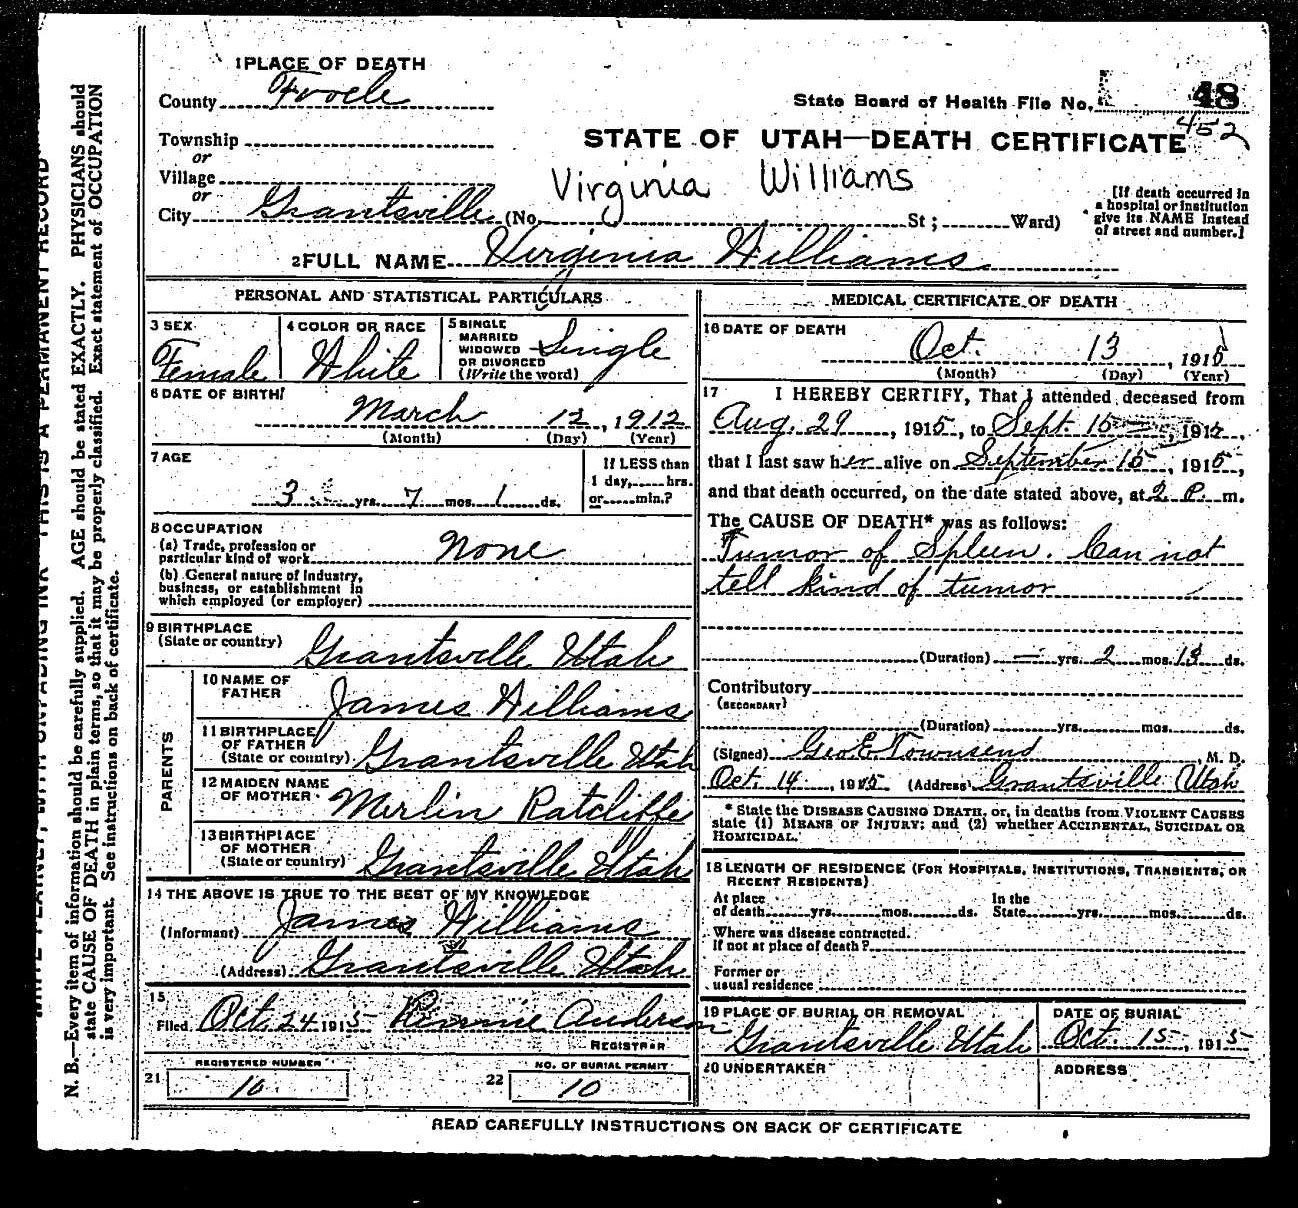 1 PLACE OF DEATH
County Tooele
State Board of Health File No. 48
452
Township
or
STATE OF UTAH—DEATH CERTIFICATE
Village
or
Virginia Williams
City Grantsville (No. St; Ward)
[If death occurred in
a hospital or institution
give its NAME instead
of street and number.]
2 FULL NAME Virginia Williams
PERSONAL AND STATISTICAL PARTICULARS
3 SEX
Female
4 COLOR OR RACE
White
5 SINGLE
MARRIED
WIDOWED
OR DIVORCED
(Write the word)
Single
6 DATE OF BIRTH
March 12, 1912
(Month) (Day) (Year)
7 AGE
3 yrs. 7 mos. 1 ds.
If LESS than
1 day, hrs.
or min.?
8 OCCUPATION
(a) Trade, profession or
particular kind of work None
(b) General nature of industry,
business, or establishment in
which employed (or employer)
9 BIRTHPLACE
(State or country) Grantsville Utah
PARENTS
10 NAME OF
FATHER James Williams
11 BIRTHPLACE
OF FATHER
(State or country) Grantsville Utah
12 MAIDEN NAME
OF MOTHER Merlin Ratcliffe
13 BIRTHPLACE
OF MOTHER
(State or country) Grantsville Utah
14 THE ABOVE IS TRUE TO THE BEST OF MY KNOWLEDGE
(Informant) James Williams
(Address) Grantsville Utah
15
Filed Oct. 24 1915 Anderson
REGISTRAR
REGISTERED NUMBER
21 10
NO. OF BURIAL PERMIT
22 10
MEDICAL CERTIFICATE OF DEATH
16 DATE OF DEATH
Oct. 13, 1915
(Month) (Day) (Year)
17 I HEREBY CERTIFY, That I attended deceased from
Aug. 29, 1915, to Sept 15, 1915,
that I last saw her alive on September 15, 1915,
and that death occurred, on the date stated above, at 2 P. m.
The CAUSE OF DEATH* was as follows:
Tumor of Spleen. Can not
tell kind of tumor
(Duration) — yrs. 2 mos. 13 ds.
Contributory
(SECONDARY)
(Duration) yrs. mos. ds.
(Signed) Geo E. Townsend, M. D.
Oct. 14, 1915 (Address) Grantsville Utah
* State the DISEASE CAUSING DEATH, or, in deaths from VIOLENT CAUSES
state (1) MEANS OF INJURY; and (2) whether ACCIDENTAL, SUICIDAL OR
HOMICIDAL.
18 LENGTH OF RESIDENCE (FOR HOSPITALS, INSTITUTIONS, TRANSIENTS, OR
RECENT RESIDENTS)
At place
of death yrs. mos. ds.
In the
State yrs. mos. ds.
Where was disease contracted.
if not at place of death?
Former or
usual residence
19 PLACE OF BURIAL OR REMOVAL
Grantsville Utah
DATE OF BURIAL
Oct. 15, 1915
20 UNDERTAKER
ADDRESS
READ CAREFULLY INSTRUCTIONS ON BACK OF CERTIFICATE
WRITE PLAINLY, WITH UNFADING INK—THIS IS A PERMANENT RECORD
N. B.—Every item of information should be carefully supplied. AGE should be stated EXACTLY. PHYSICIANS should
state CAUSE OF DEATH in plain terms, so that it may be properly classified. Exact statement of OCCUPATION
is very important. See instructions on back of certificate.